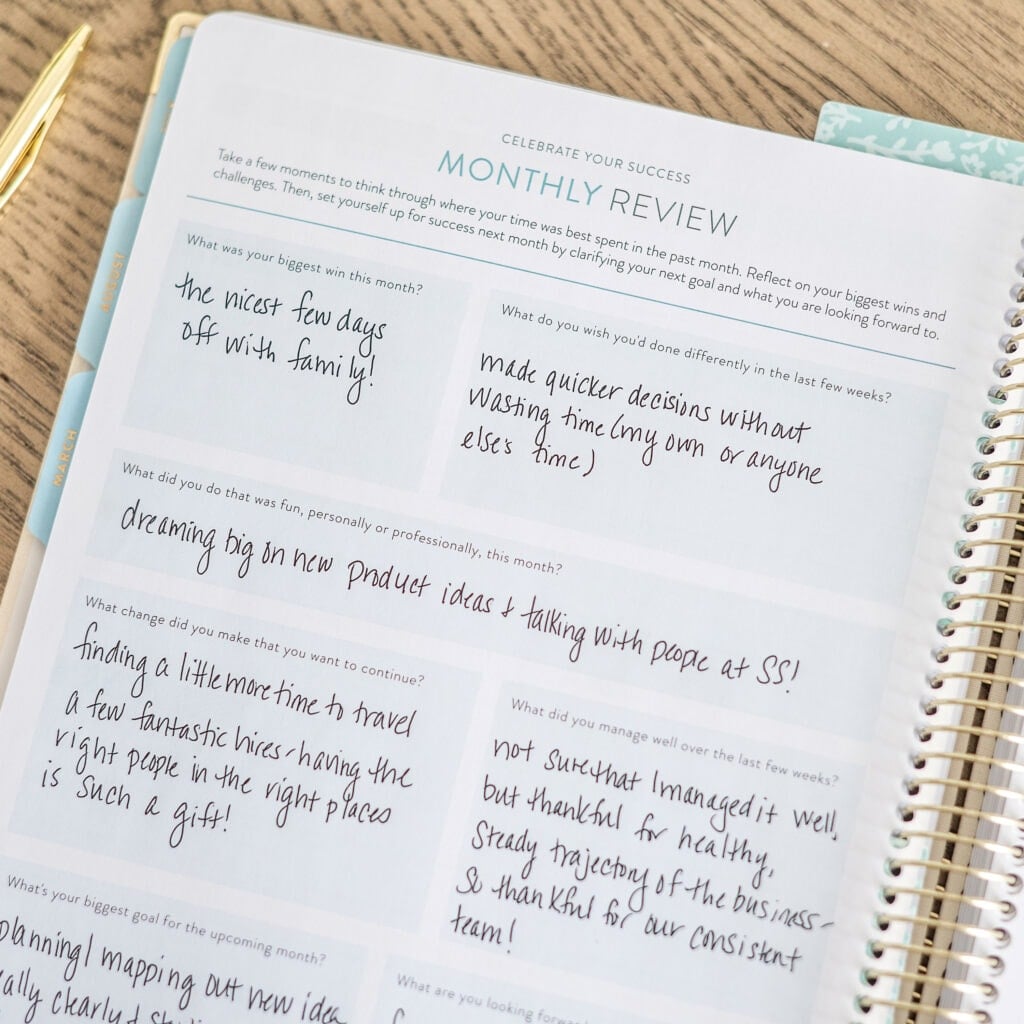 CELEBRATE YOUR SUCCESS
MONTHLY REVIEW
Take a few moments to think through where your time was best spent in the past month. Reflect on your biggest wins and
challenges. Then, set yourself up for success next month by clarifying your next goal and what you are looking forward to.
What was your biggest win this month?
the nicest few days
off with family!
What do you wish you'd done differently in the last few weeks?
made quicker decisions without
wasting time (my own or anyone
else's time)
What did you do that was fun, personally or professionally, this month?
dreaming big on new product ideas & talking with people at SS!
What change did you make that you want to continue?
finding a little more time to travel
a few fantastic hires - having the
right people in the right places
is such a gift!
What did you manage well over the last few weeks?
not sure that I managed it well,
but thankful for healthy,
steady trajectory of the business -
so thankful for our consistent
team!
What's your biggest goal for the upcoming month?
planning/ mapping out new idea
clearly &
What are you looking forward
AUGUST
MARCH